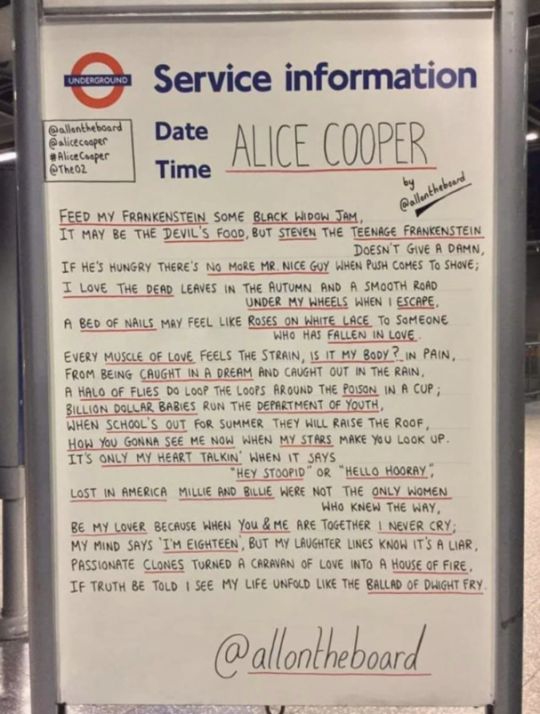 UNDERGROUND
Service information
@allontheboard
@alicecooper
#AliceCooper
@TheO2
Date
Time
ALICE COOPER
by
@allontheboard
FEED MY FRANKENSTEIN SOME BLACK WIDOW JAM,
IT MAY BE THE DEVIL'S FOOD, BUT STEVEN THE TEENAGE FRANKENSTEIN
DOESN'T GIVE A DAMN,
IF HE'S HUNGRY THERE'S NO MORE MR. NICE GUY WHEN PUSH COMES TO SHOVE;
I LOVE THE DEAD LEAVES IN THE AUTUMN AND A SMOOTH ROAD
UNDER MY WHEELS WHEN I ESCAPE,
A BED OF NAILS MAY FEEL LIKE ROSES ON WHITE LACE TO SOMEONE
WHO HAS FALLEN IN LOVE.
EVERY MUSCLE OF LOVE FEELS THE STRAIN, IS IT MY BODY? IN PAIN,
FROM BEING CAUGHT IN A DREAM AND CAUGHT OUT IN THE RAIN,
A HALO OF FLIES DO LOOP THE LOOPS AROUND THE POISON IN A CUP;
BILLION DOLLAR BABIES RUN THE DEPARTMENT OF YOUTH,
WHEN SCHOOL'S OUT FOR SUMMER THEY WILL RAISE THE ROOF,
HOW YOU GONNA SEE ME NOW WHEN MY STARS MAKE YOU LOOK UP.
IT'S ONLY MY HEART TALKIN' WHEN IT SAYS
"HEY STOOPID" OR "HELLO HOORAY",
LOST IN AMERICA MILLIE AND BILLIE WERE NOT THE ONLY WOMEN
WHO KNEW THE WAY,
BE MY LOVER BECAUSE WHEN YOU & ME ARE TOGETHER I NEVER CRY;
MY MIND SAYS 'I'M EIGHTEEN', BUT MY LAUGHTER LINES KNOW IT'S A LIAR,
PASSIONATE CLONES TURNED A CARAVAN OF LOVE INTO A HOUSE OF FIRE,
IF TRUTH BE TOLD I SEE MY LIFE UNFOLD LIKE THE BALLAD OF DWIGHT FRY.
@allontheboard